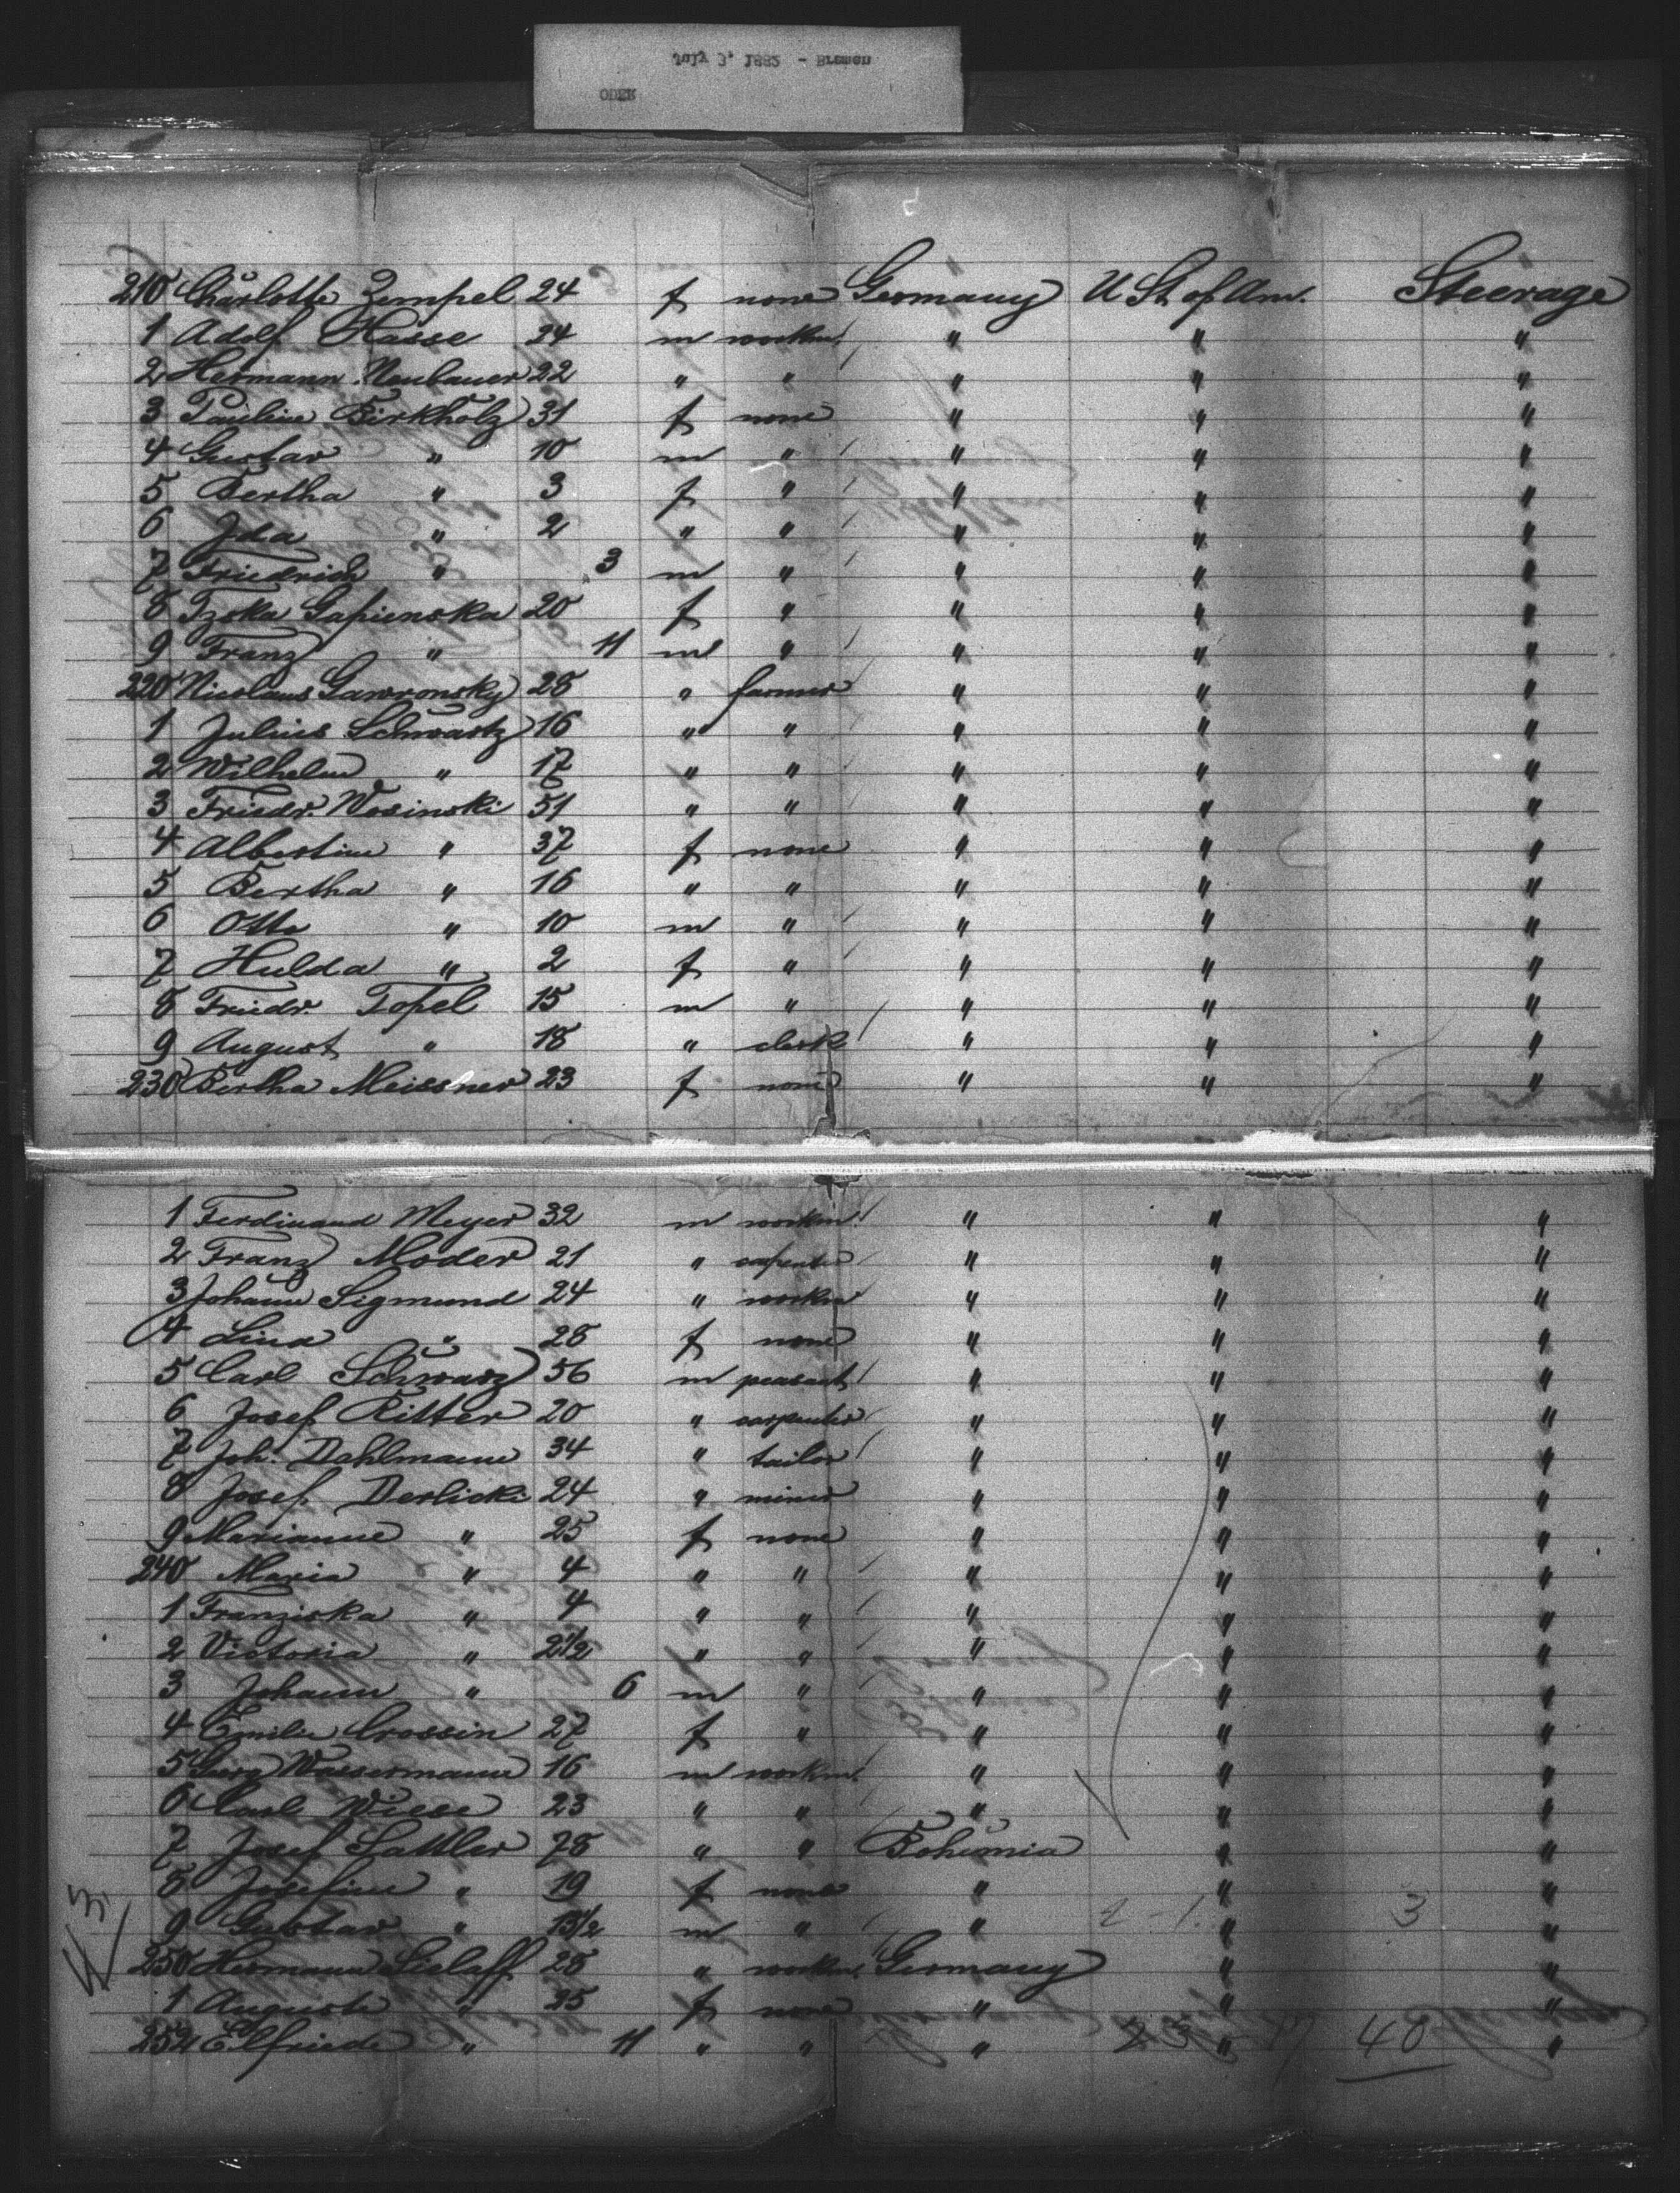 July 3, 1882 - Bremen
ODER
210 Charlotte Zempel 24 f none Germany U St of Am. Steerage
1 Adolf Hasse 24 m workm. " " "
2 Hermann Neubauer 22 " " " " "
3 Pauline Birkholz 31 f none " " "
4 Gustav " 10 m " " " "
5 Bertha " 3 f " " " "
6 Ida " 2 " " " " "
7 Friedrich " 3 m " " " "
8 Tzska Gapienska 20 f " " " "
9 Franz " 11 m " " " "
220 Nicolaus Gawronsky 28 " farmer " " "
1 Julius Schwartz 16 " " " " "
2 Wilhelm " 17 " " " " "
3 Friedr. Wosinski 51 " " " " "
4 Albertine " 37 f none " " "
5 Bertha " 16 " " " " "
6 Otto " 10 m " " " "
7 Hulda " 2 f " " " "
8 Friedr. Topel 15 m " " " "
9 August " 18 " clerk " " "
230 Bertha Meissner 23 f none " " "
1 Ferdinand Meyer 32 m workm. " " "
2 Franz Moder 21 " carpenter " " "
3 Johann Sigmund 24 " workm " " "
4 Lina " 28 f none " " "
5 Carl Schwarz 56 m peasant " " "
6 Josef Ritter 20 " carpenter " " "
7 Joh. Dahlmann 34 " tailor " " "
8 Josef Derlicki 24 " miner " " "
9 Marianne " 25 f none " " "
240 Maria " 4 " " " " "
1 Franziska " 4 " " " " "
2 Victoria " 2 1/2 " " " " "
3 Johann " 6 m " " " "
4 Emilie Crossin 27 f " " " "
5 Georg Wassermann 16 m workm. " " "
6 Carl Wiese 23 " " " " "
7 Josef Sattler 78 " " Bohemia " "
8 Josefine " 19 f none " " "
9 Gustav " 13 1/2 m " " 2 - 1. " 3 "
250 Hermann Sielaff 28 " workm. Germany " "
1 Auguste " 25 f none " " "
252 Elfriede " 11 " " " 23 " 17 40 "